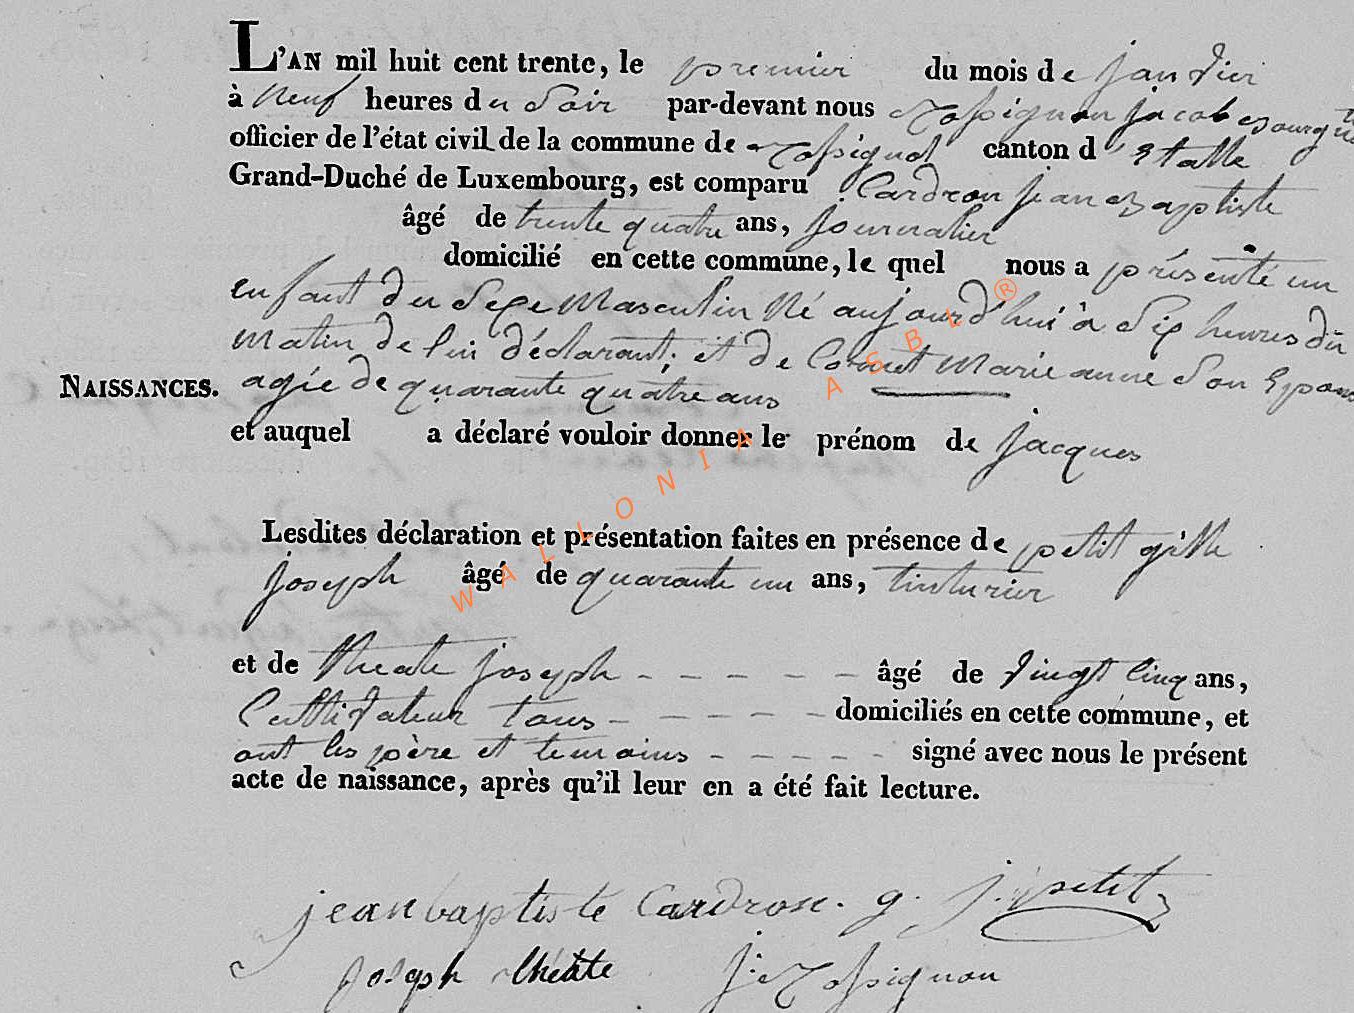 L'AN mil huit cent trente, le premier du mois de janvier
à neuf heures du soir par-devant nous Rossignon jacob
officier de l'état civil de la commune de Rossignol canton d'Etalle
Grand-Duché de Luxembourg, est comparu Cardron jean Baptiste
âgé de trente quatre ans, journalier
domicilié en cette commune, le quel nous a présenté un
enfant du sexe Masculin Né aujourd'hui à six heures du
Matin de lui déclarant, et de Cornet Marie anne son Epouse
NAISSANCES. agée de quarante quatre ans
et auquel a déclaré vouloir donner le prénom de jacques
Lesdites déclaration et présentation faites en présence de petit gille
joseph âgé de quarante un ans, tinturier
et de theate joseph - - - - - - âgé de vingt cinq ans,
Cultivateur tous - - - - - - domiciliés en cette commune, et
ont les père et temoins - - - - - signé avec nous le présent
acte de naissance, après qu'il leur en a été fait lecture.
jean baptiste Cardron. g. j. petit
joseph théate J: Rossignon
WALLONIA ASBL ®